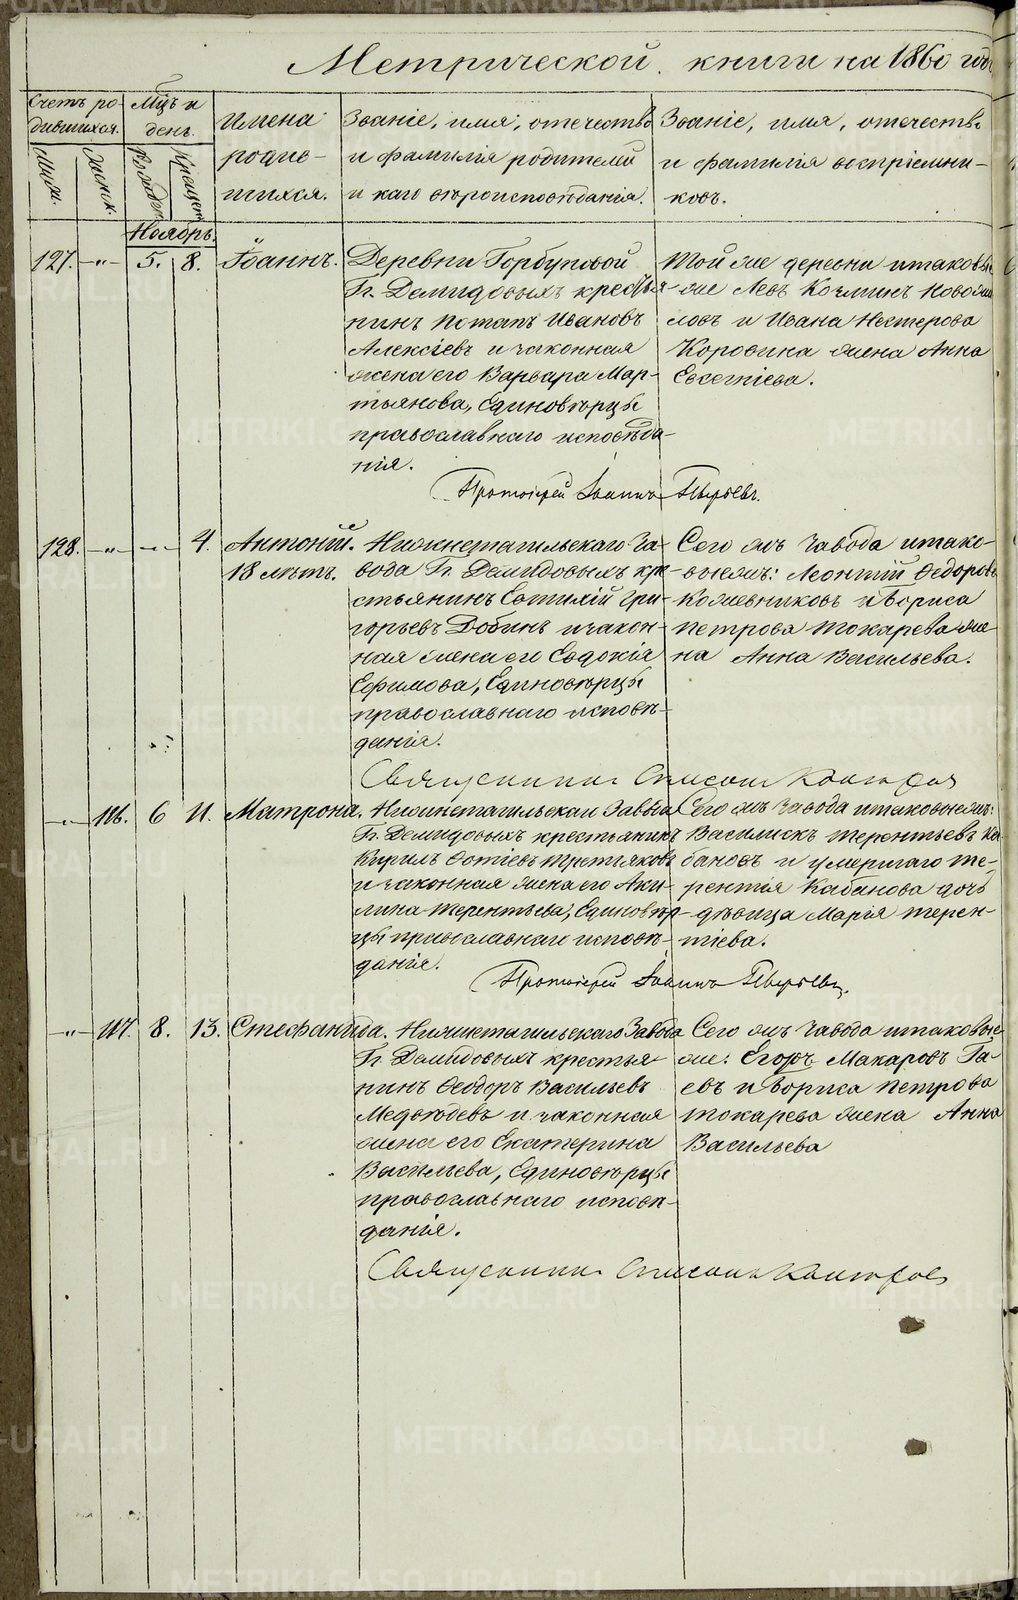 Метрической книги на 1860 годъ
Счетъ ро-
дившихся.
Муж.
Женск.
Мѣсъ и
день.
Рожден.
Крещен.
Имена
родив-
шихся.
Званіе, имя, отечество
и фамилія родителей
и какого вѣроисповѣданія.
Званіе, имя, отечество
и фамилія воспріемни-
ковъ.
Ноябрь.
127. -"- 5. 8. Іоаннъ.
Деревни Горбуновой
Гг. Демидовыхъ крестья-
нинъ Потапъ Ивановъ
Алексіевъ и законная
жена его Варвара Мар-
тьянова, Единовѣрцы
православнаго исповѣда-
нія.
Той же деревни таковые
же Левъ
и Ивана Нестерова
Коровина жена Анна
Евсегніева.
Протоіерей Іоаннъ Пырьевъ.
128. -"- -"- 4. Антоній.
18 лѣтъ.
Нижнетагильскаго За-
вода Гг. Демидовыхъ кре-
стьянинъ Евтихій Гри-
горьевъ Добинъ и закон-
ная жена его Евдокія
Ефимова, Единовѣрцы
православнаго исповѣ-
данія.
Сего жъ Завода и тако-
выежъ: Леонтій Федоровъ
Кожевниковъ и Бориса
Петрова Токарева же-
на Анна Васильева.
Священникъ
-"- 116. 6 11. Матрона.
Нижнетагильскаго Завода
Гг. Демидовыхъ крестьянинъ
Кирилъ Фотіевъ Третьяковъ
и законная жена его Аки-
лина Терентьева, Единовѣр-
цы православнаго исповѣ-
данія.
Сего жъ Завода и таковыежъ:
Василискъ Терентьевъ Ка-
бановъ и умершаго Те-
рентія Кабанова дочь
дѣвица Марія Терен-
тіева.
Протоіерей Іоаннъ Пырьевъ.
-"- 117. 8. 13. Стефанида.
Нижнетагильскаго Завода
Гг. Демидовыхъ крестья-
нинъ Феодоръ Васильевъ
Медвѣдевъ и законная
жена его Екатерина
Васильева, Единовѣрцы
православнаго исповѣ-
данія.
Сего жъ Завода и таковые
же: Егоръ Макаровъ Га-
евъ и Бориса Петрова
Токарева жена Анна
Васильева
Священникъ
METRIKI.GASO-URAL.RU